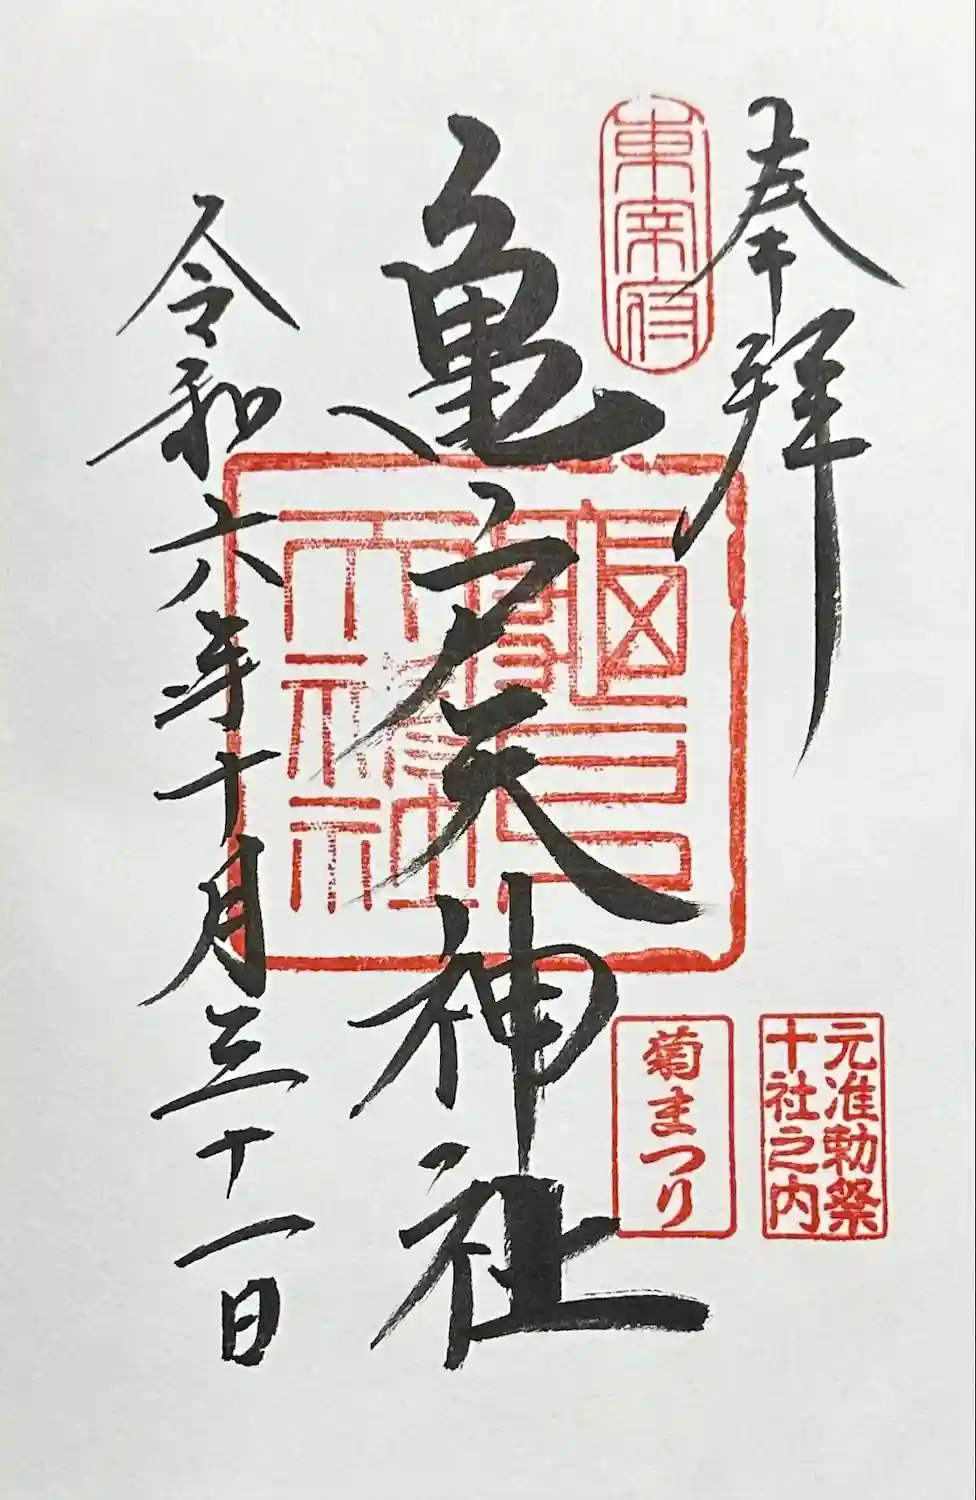 奉拝
東宰府
亀戸天神社
元准勅祭
十社之内
菊まつり
令和六年十月三十一日